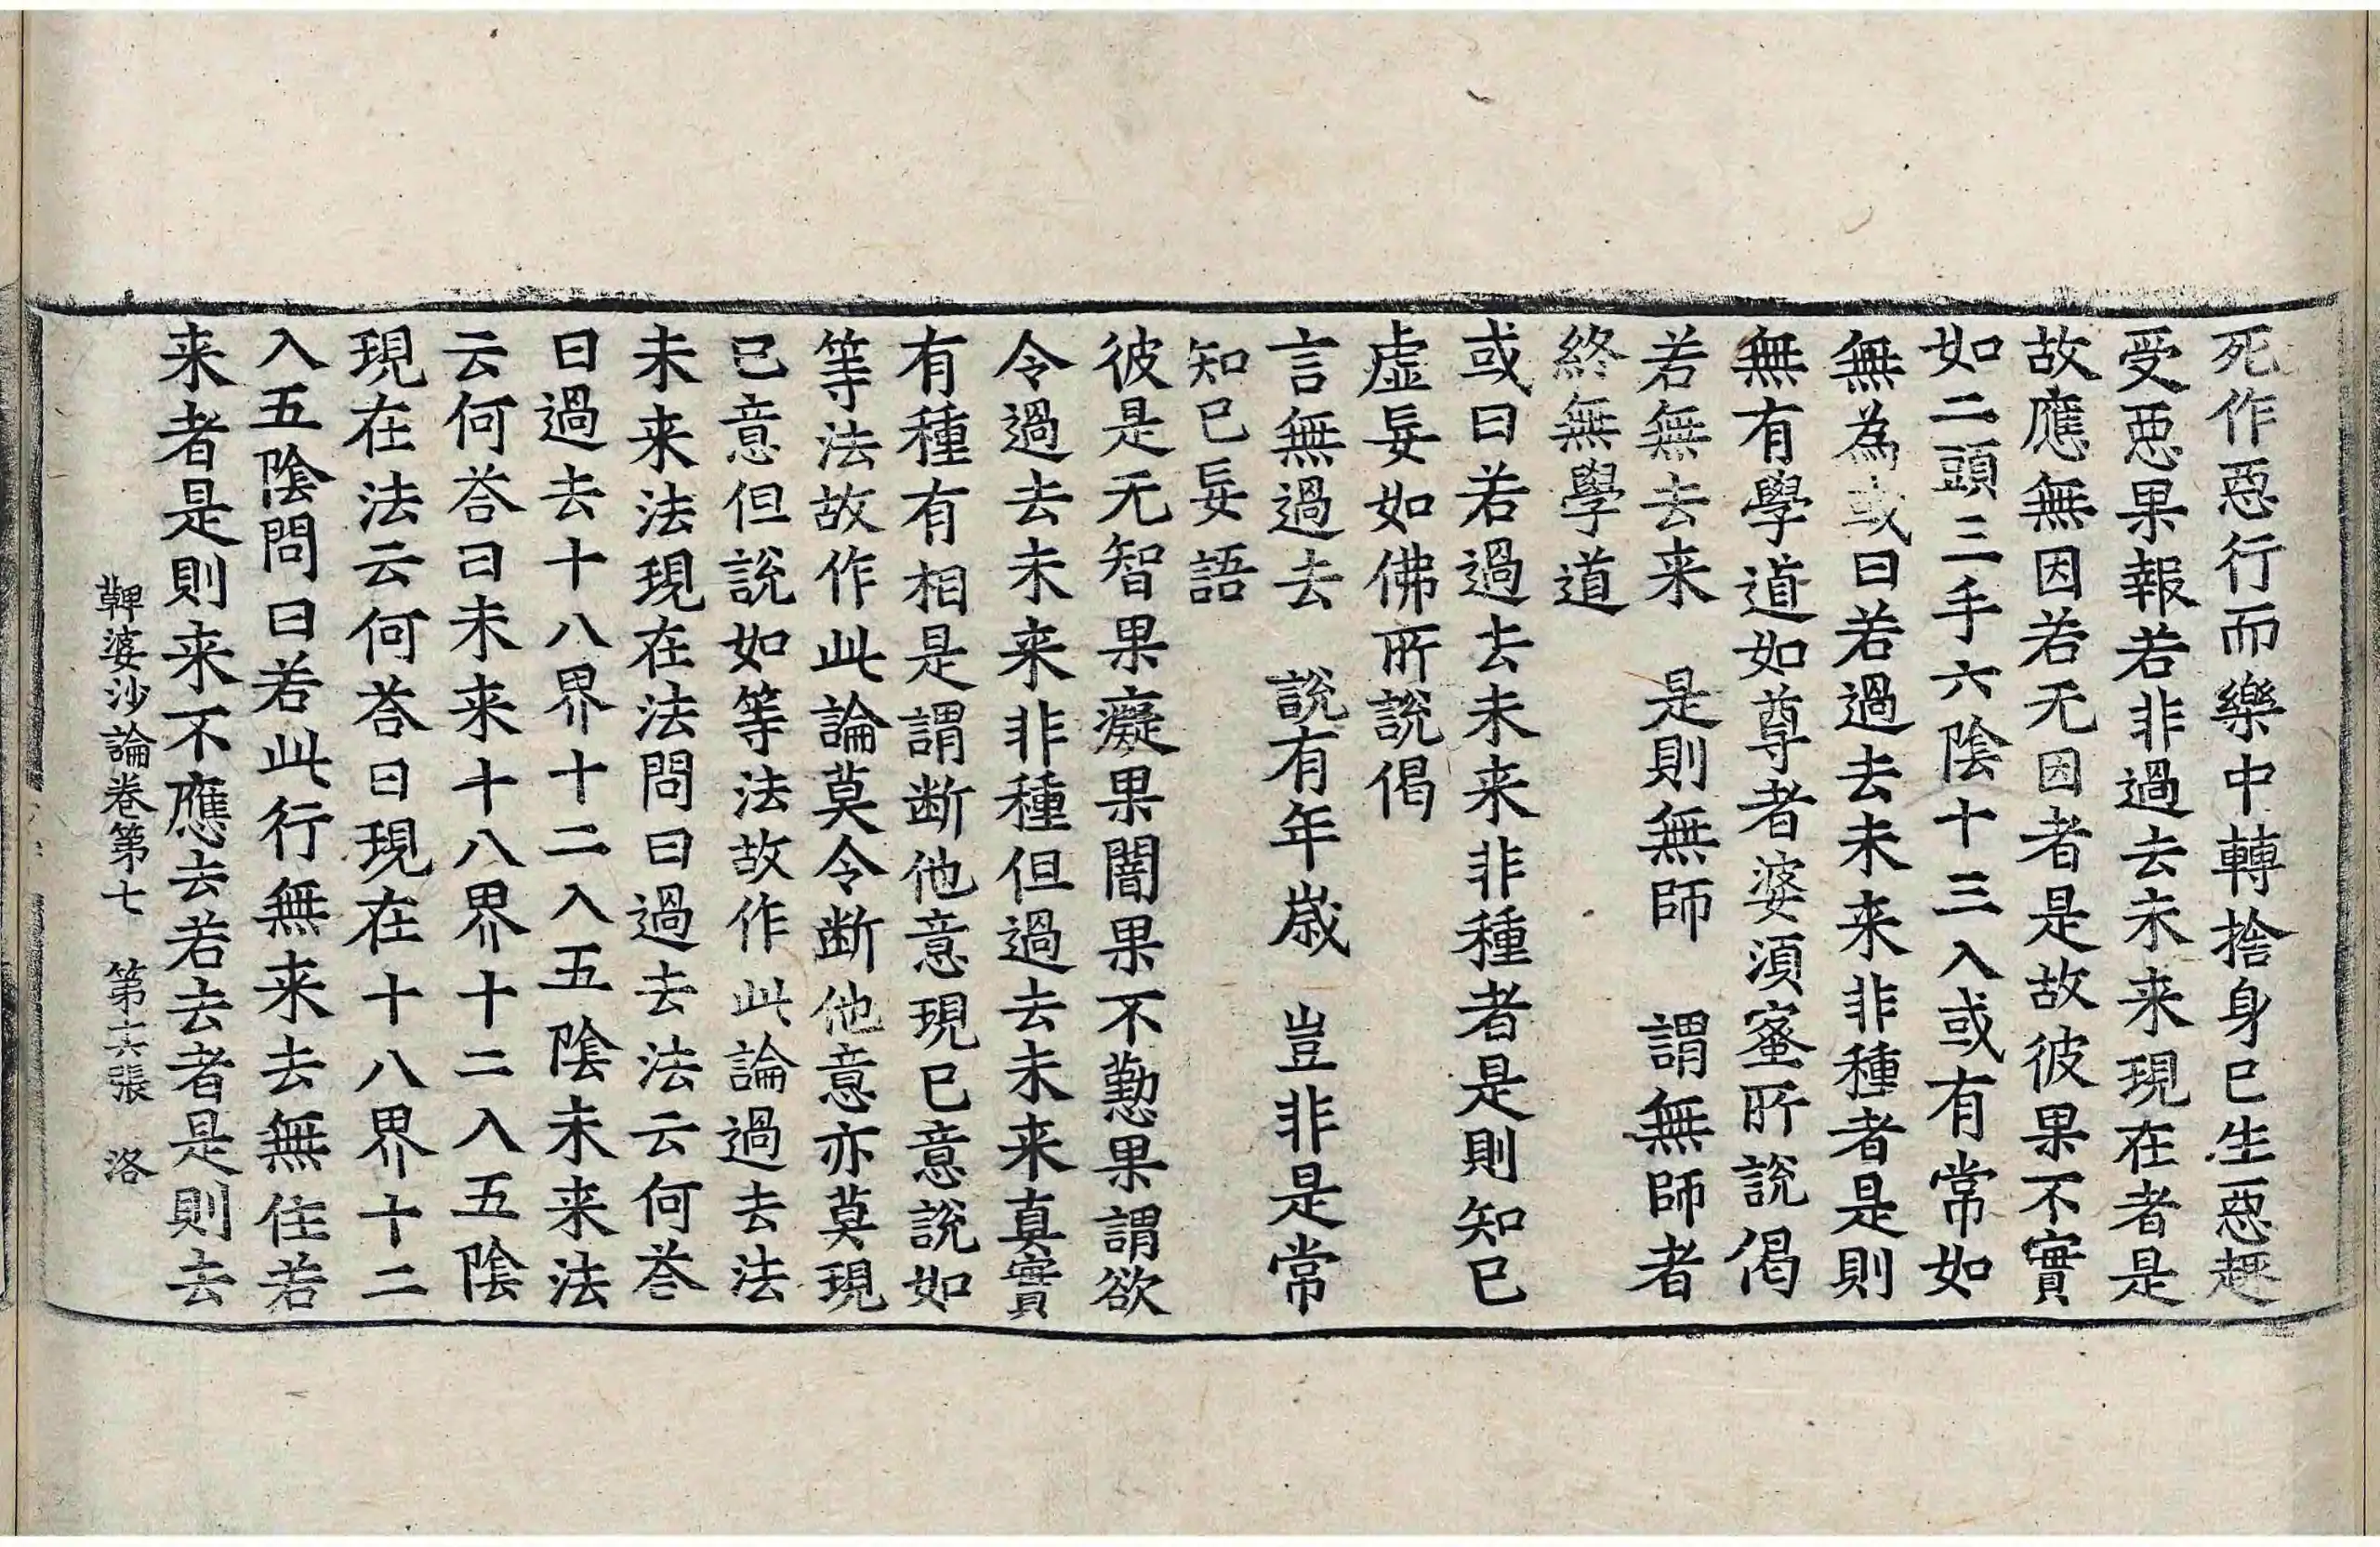 死作惡行而樂中轉捨身已生惡趣
受惡果報若非過去未来現在者是
故應無因若无因者是故彼果不實
如二頭三手六陰十三入或有常如
無為或曰若過去未来非種者是則
無有學道如尊者婆湏蜜所說偈
若無去来　是則無師　謂無師者
終無學道
或曰若過去未来非種者是則知已
虛妄如佛所說偈
言無過去　說有年歲　豈非是常
知已妄語
彼是无智果癡果闇果不懃果謂欲
令過去未来非種但過去未来真實
有種有相是謂断他意現已意說如
等法故作此論莫令断他意亦莫現
已意但說如等法故作此論過去法
未来法現在法問曰過去法云何荅
曰過去十八界十二入五陰未来法
云何荅曰未来十八界十二入五陰
現在法云何荅曰現在十八界十二
入五陰問曰若此行無来去無住若
来者是則来不應去若去者是則去
鞞婆沙論卷第七　第六張　洛